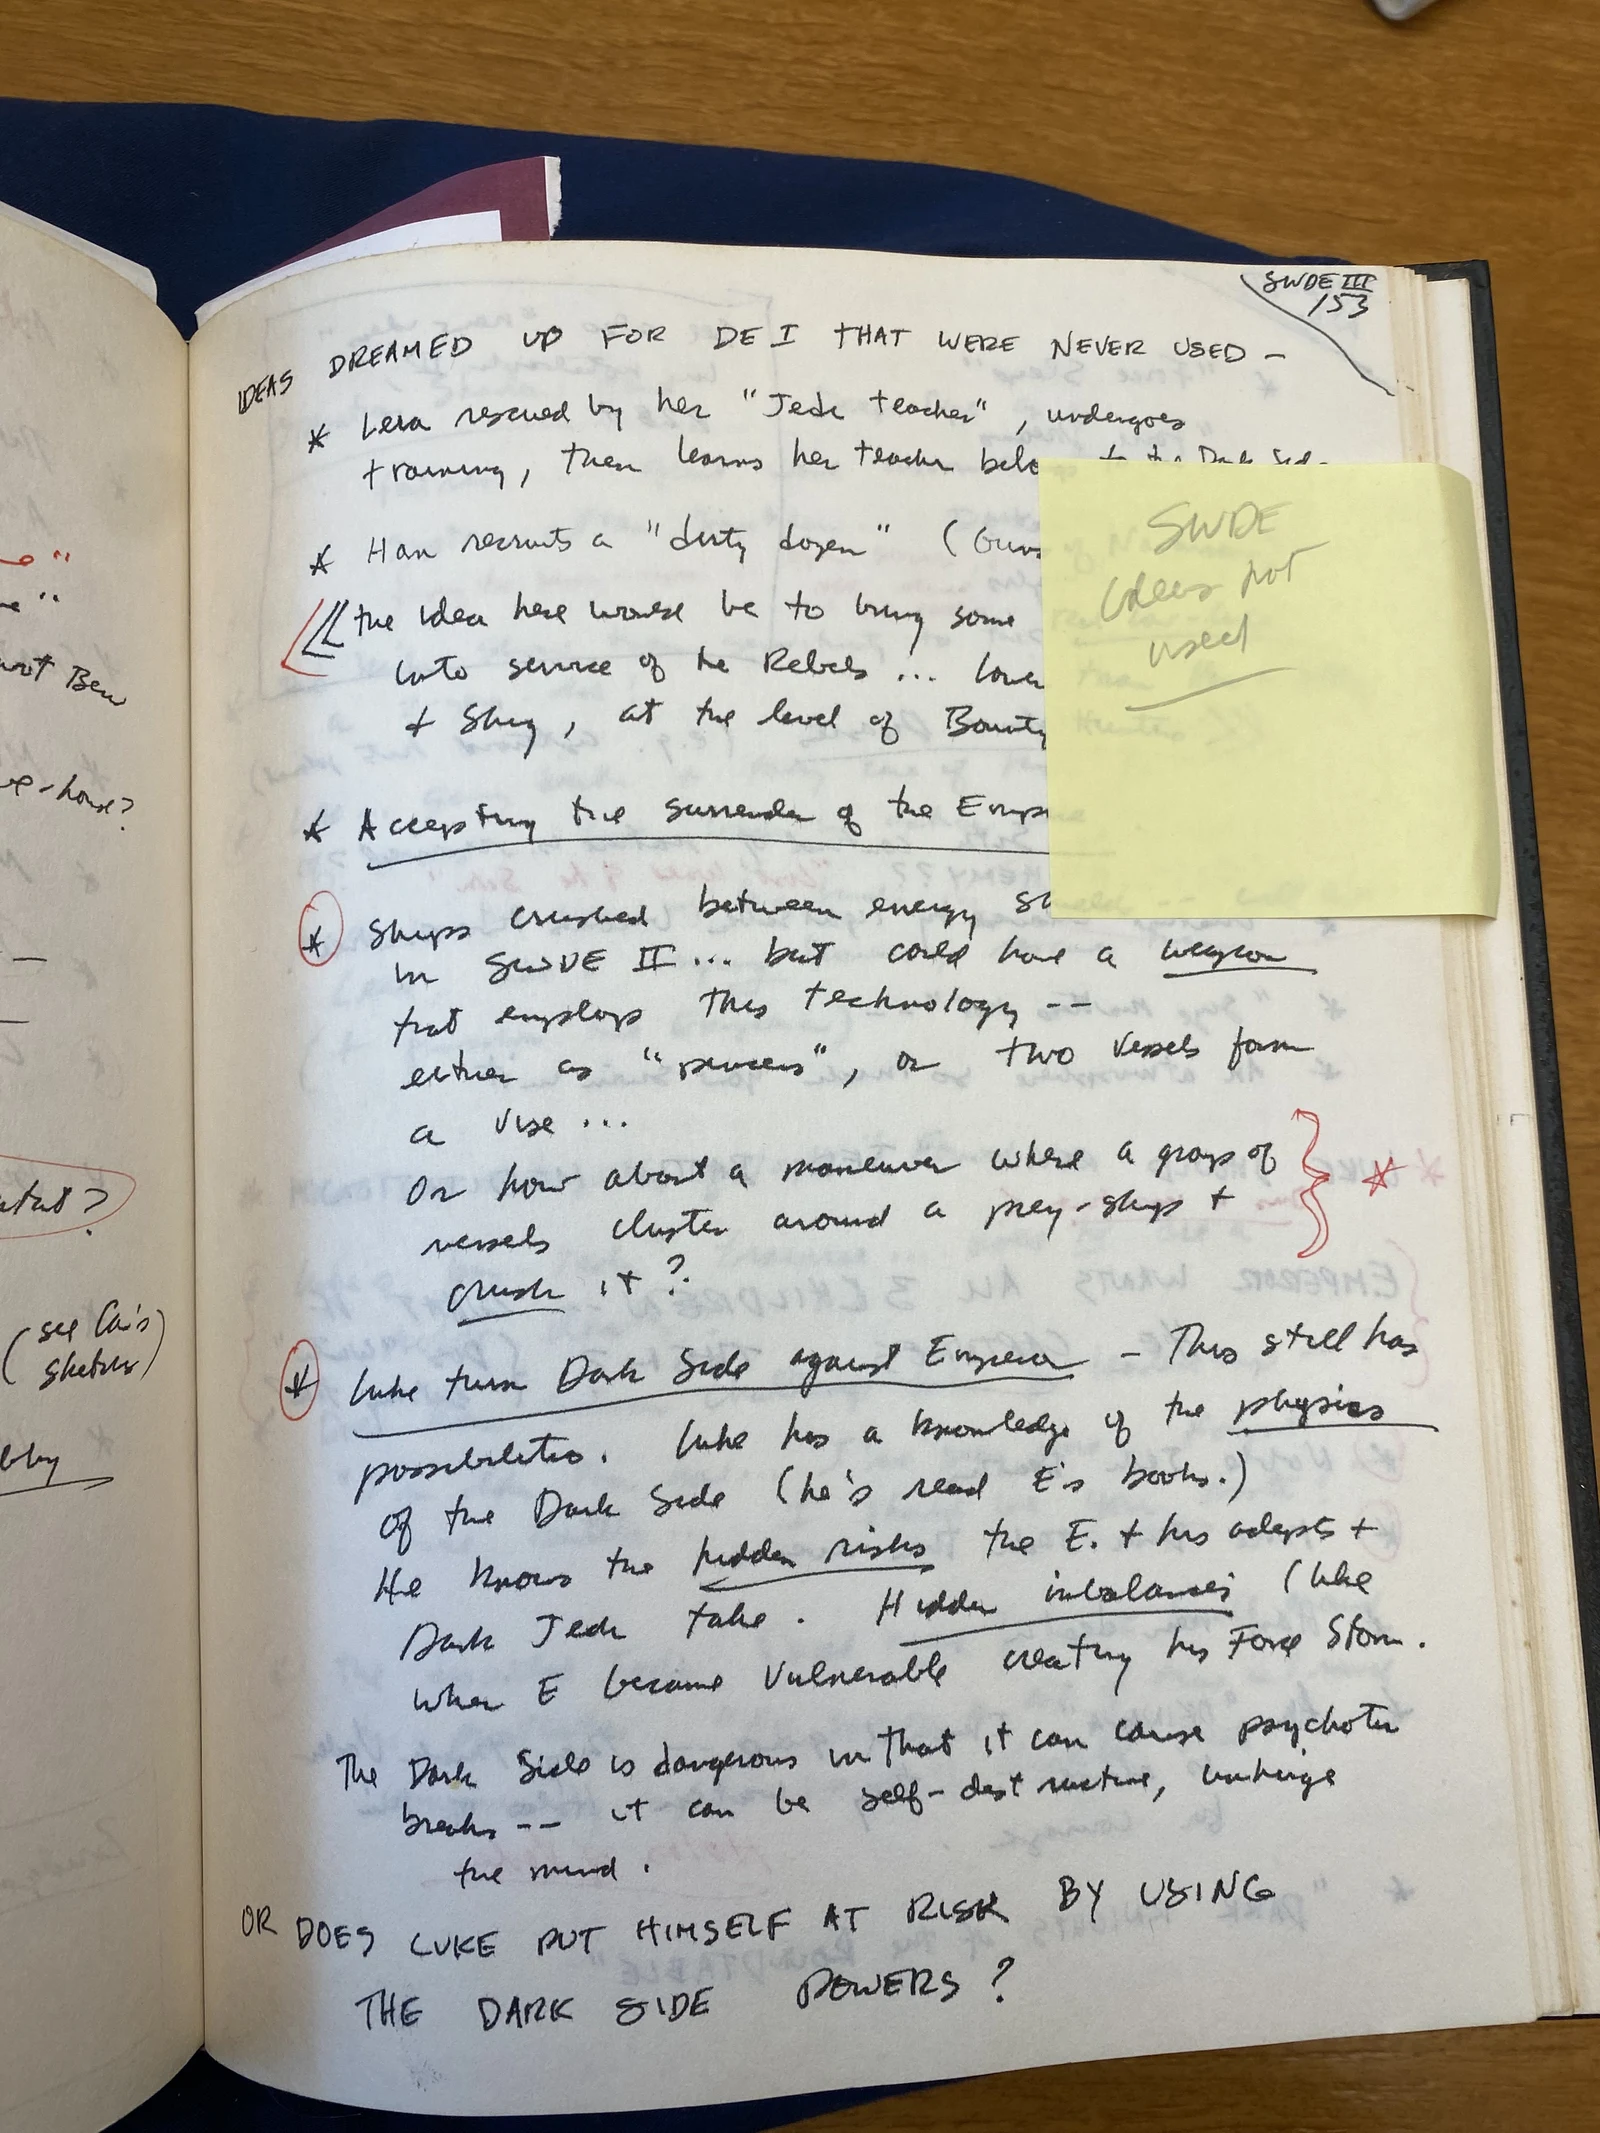 SWDE III
153
IDEAS DREAMED UP FOR DE I THAT WERE NEVER USED —
* Leia rescued by her "Jedi teacher", undergoes
training, then learns her teacher belo to the Dark Sid
* Han recruits a "dirty dozen" (Guns
the idea here would be to bring some
into service of the Rebels ... lower
+ Shug, at the level of Bounty
* Accepting the surrender of the Empire
* Ships crushed between energy shield
in SWDE II ... but could have a weapon
that employs this technology --
either as "pincers", or two vessels form
a vise ...
Or how about a maneuver where a group of
vessels cluster around a prey-ship +
crush it?
*
* Luke turn Dark Side against Emperor — This still has
possibilities. Luke has a knowledge of the physics
of the Dark Side (he's read E's books.)
He knows the hidden risks the E. + his adepts +
Dark Jedi take. Hidden imbalances (like
when E became vulnerable creating his Force Storm.
The Dark Side is dangerous in that it can cause psychotic
breaks -- it can be self-destructive, unhinge
the mind.
OR DOES LUKE PUT HIMSELF AT RISK BY USING
THE DARK SIDE POWERS?
SWDE
ideas not
used
Ben
-house?
(see Cam's
sketches)